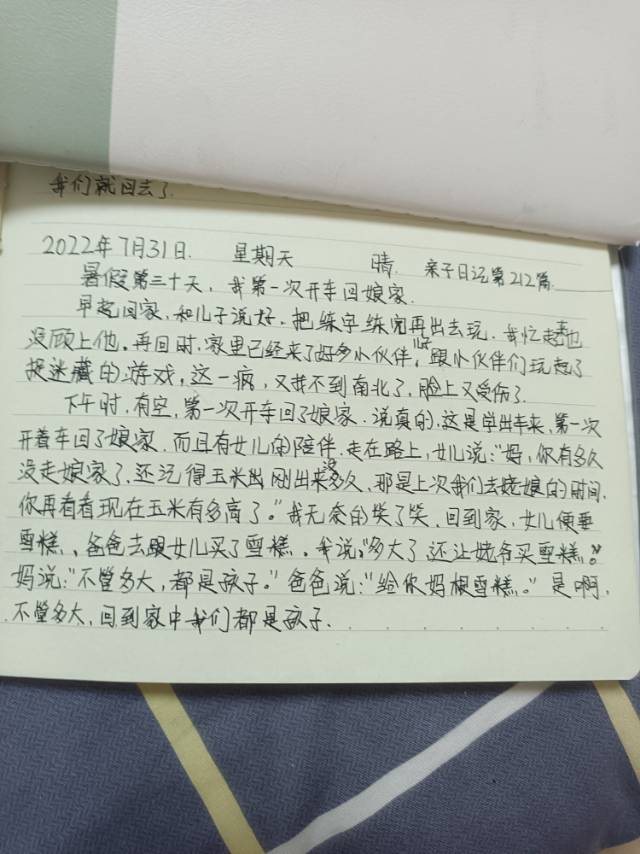 我们就回去了.
2022年7月31日. 星期天 晴. 亲子日记第212篇.
暑假第三十天, 我第一次开车回娘家.
早起回家, 和儿子说好. 把练字练完再出去玩. 我忙起来也
没顾上他. 再回时, 家里已经来了好多小伙伴, 跟小伙伴们玩起了
捉迷藏的游戏, 这一疯, 又找不到南北了, 脸上又受伤了.
下午时, 有空, 第一次开车回了娘家. 说真的, 这是学出车来, 第一次
开着车回了娘家. 而且有女儿的陪伴. 走在路上, 女儿说:"妈, 你有多久
没走娘家了, 还记得玉米出刚出来没多久, 那是上次我们去姥娘的时间.
你再看看现在玉米有多高了。"我无奈的笑了笑, 回到家, 女儿便要
雪糕. 爸爸去跟女儿买了雪糕. 我说:"多大了, 还让姥爷买雪糕。"
妈说:"不管多大, 都是孩子。"爸爸说:"给你妈根雪糕。"是啊,
不管多大, 回到家中我们都是孩子.